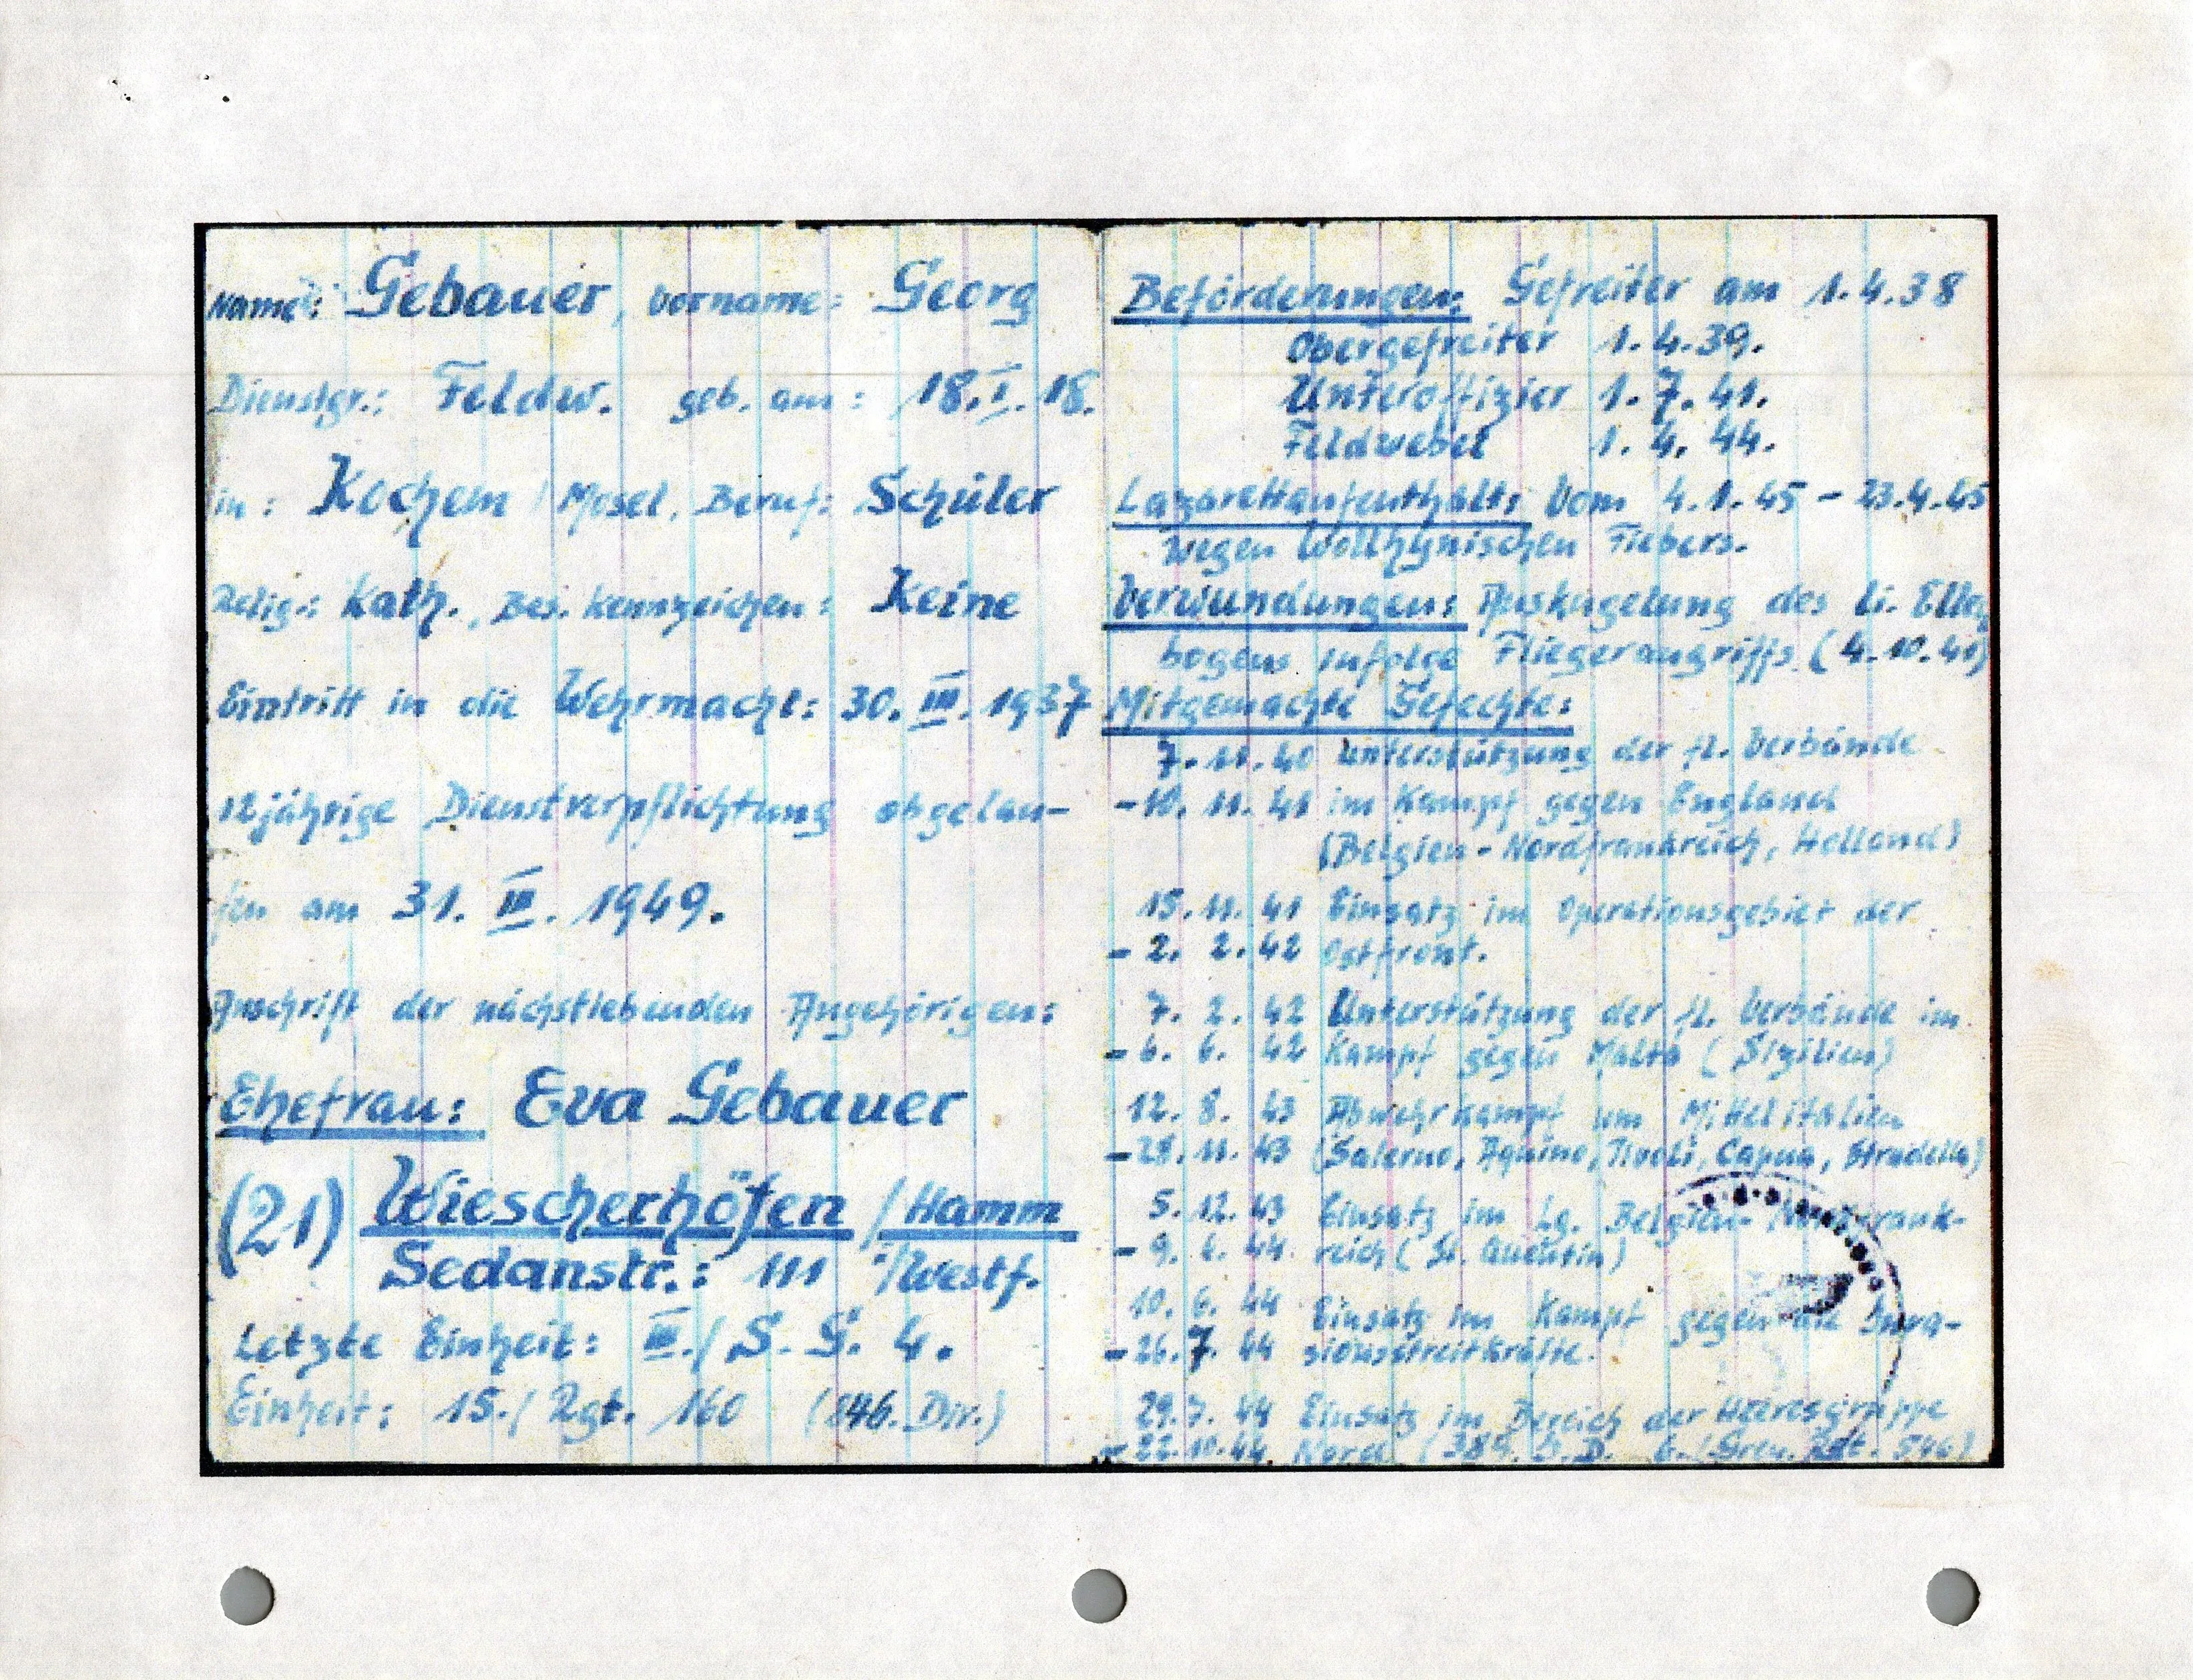 Name: Gebauer, Vorname: Georg
Dienstgr.: Feldw. geb. am: 18. I. 18.
in: Kochem / Mosel, Beruf: Schüler
Relig.: Kath., Bes. Kennzeichen: Keine
Eintritt in die Wehrmacht: 30. III. 1937
12jährige Dienstverpflichtung abgelau-
fen am 31. III. 1949.
Anschrift der nächstlebenden Angehörigen:
Ehefrau: Eva Gebauer
(21) Wiescherhöfen / Hamm
Sedanstr.: 111 /Westf.
Letzte Einheit: III./ S. G. 4.
Einheit: 15./ Rgt. 160 (846. Div.)
Beförderungen: Gefreiter am 1.4.38
Obergefreiter 1.4.39.
Unteroffizier 1.7.41.
Feldwebel 1.4.44.
Lazarettaufenthalt: Vom 4.1.45 - 23.4.45
wegen Wolhynischen Fiebers.
Verwundungen: Auskugelung des li. Ellen
bogens infolge Fliegerangriffs (4.10.41)
Mitgemachte Gefechte:
7.11.40 Unterstützung der fl. Verbände
-10.11.41 im Kampf gegen England
(Belgien-Nordfrankreich, Holland)
15.11.41 Einsatz im Operationsgebiet der
- 2. 2.42 Ostfront.
7. 2. 42 Unterstützung der fl. Verbände im
- 6. 6. 42 Kampf gegen Malta (Sizilien)
12. 8. 43 Abwehrkampf um Mittelitalien
- 28. 11. 43 (Salerno, Aquino, Tivoli, Capua, Stradella)
5. 12. 43 Einsatz im Lg. Belgien-Nordfrank-
- 9. 6. 44 reich (St. Quentin)
10. 6. 44 Einsatz im Kampf gegen die Inva-
- 26. 7. 44 sionsstreitkräfte.
29. 7. 44 Einsatz im Bereich der Heeresgruppe
- 22.10.44. Nord (389. I.D. 6./Gren. Rgt. 546)